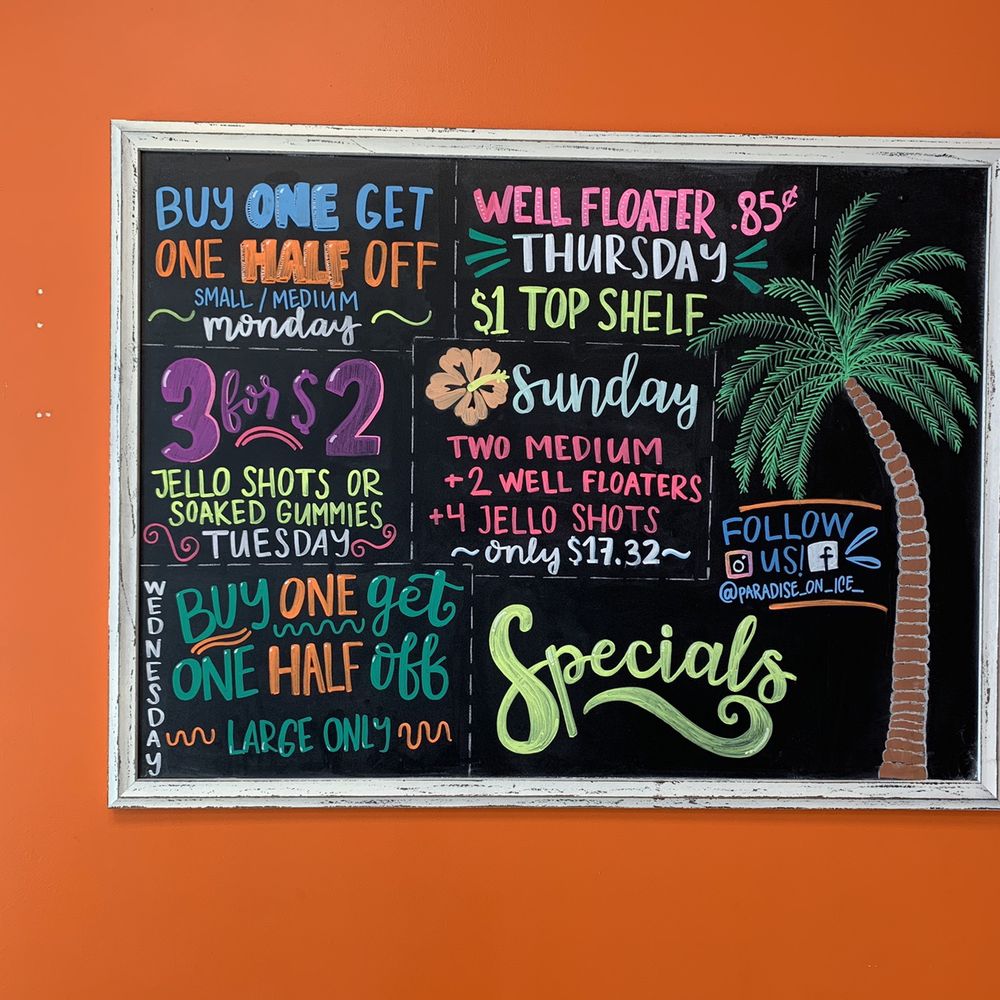 BUY ONE GET
ONE HALF OFF
SMALL / MEDIUM
monday
WELL FLOATER .85¢
THURSDAY
$1 TOP SHELF
3 for $2
JELLO SHOTS OR
SOAKED GUMMIES
TUESDAY
sunday
TWO MEDIUM
+2 WELL FLOATERS
+4 JELLO SHOTS
~only $17.32~
FOLLOW
US!
@PARADISE_ON_ICE_
WEDNESDAY
BUY ONE get
ONE HALF off
LARGE ONLY
Specials